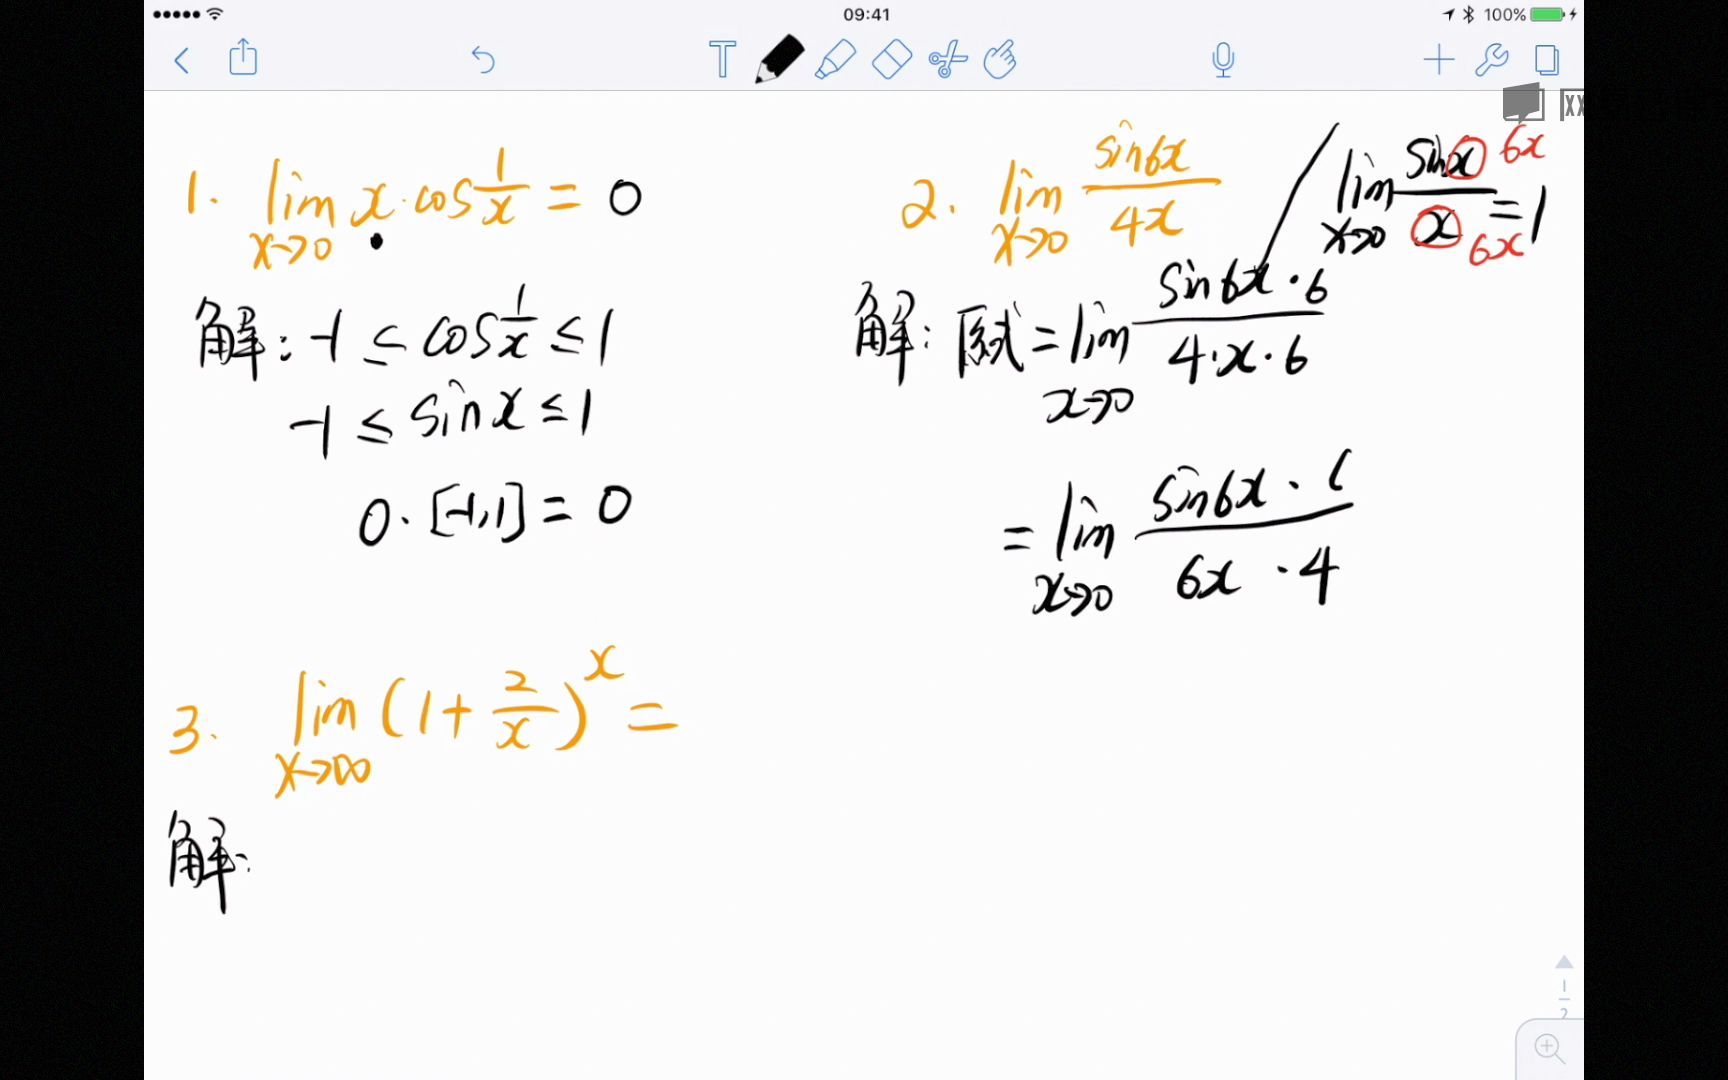 09:41
100%
1. lim x→0 x·cos 1/x = 0
解: -1 ≤ cos 1/x ≤ 1
-1 ≤ sin x ≤ 1
0·[-1,1] = 0
2. lim x→0 sin6x / 4x
lim x→0 sin x / x = 1
6x
6x
解: 原式 = lim x→0 sin6x·6 / 4·x·6
= lim x→0 sin6x· / 6x·4
3. lim x→∞ (1 + 2/x)^x =
解:
1
2